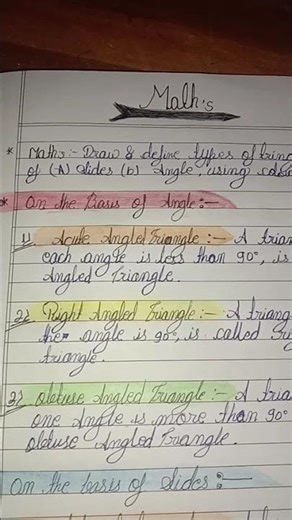 Math's
* Maths:- Draw & define types of
of (A) Sides (b) Angle, using
* On the Basis of Angle:-
1) Acute Angled Triangle:- A
each angle is less than 90°, is
Angled Triangle.
2) Right Angled Triangle:- A
the angle is 90°, is called
triangle.
3) Obtuse Angled Triangle:- A
one Angle is more than 90°
obtuse Angled Triangle.
On the basis of Sides:-